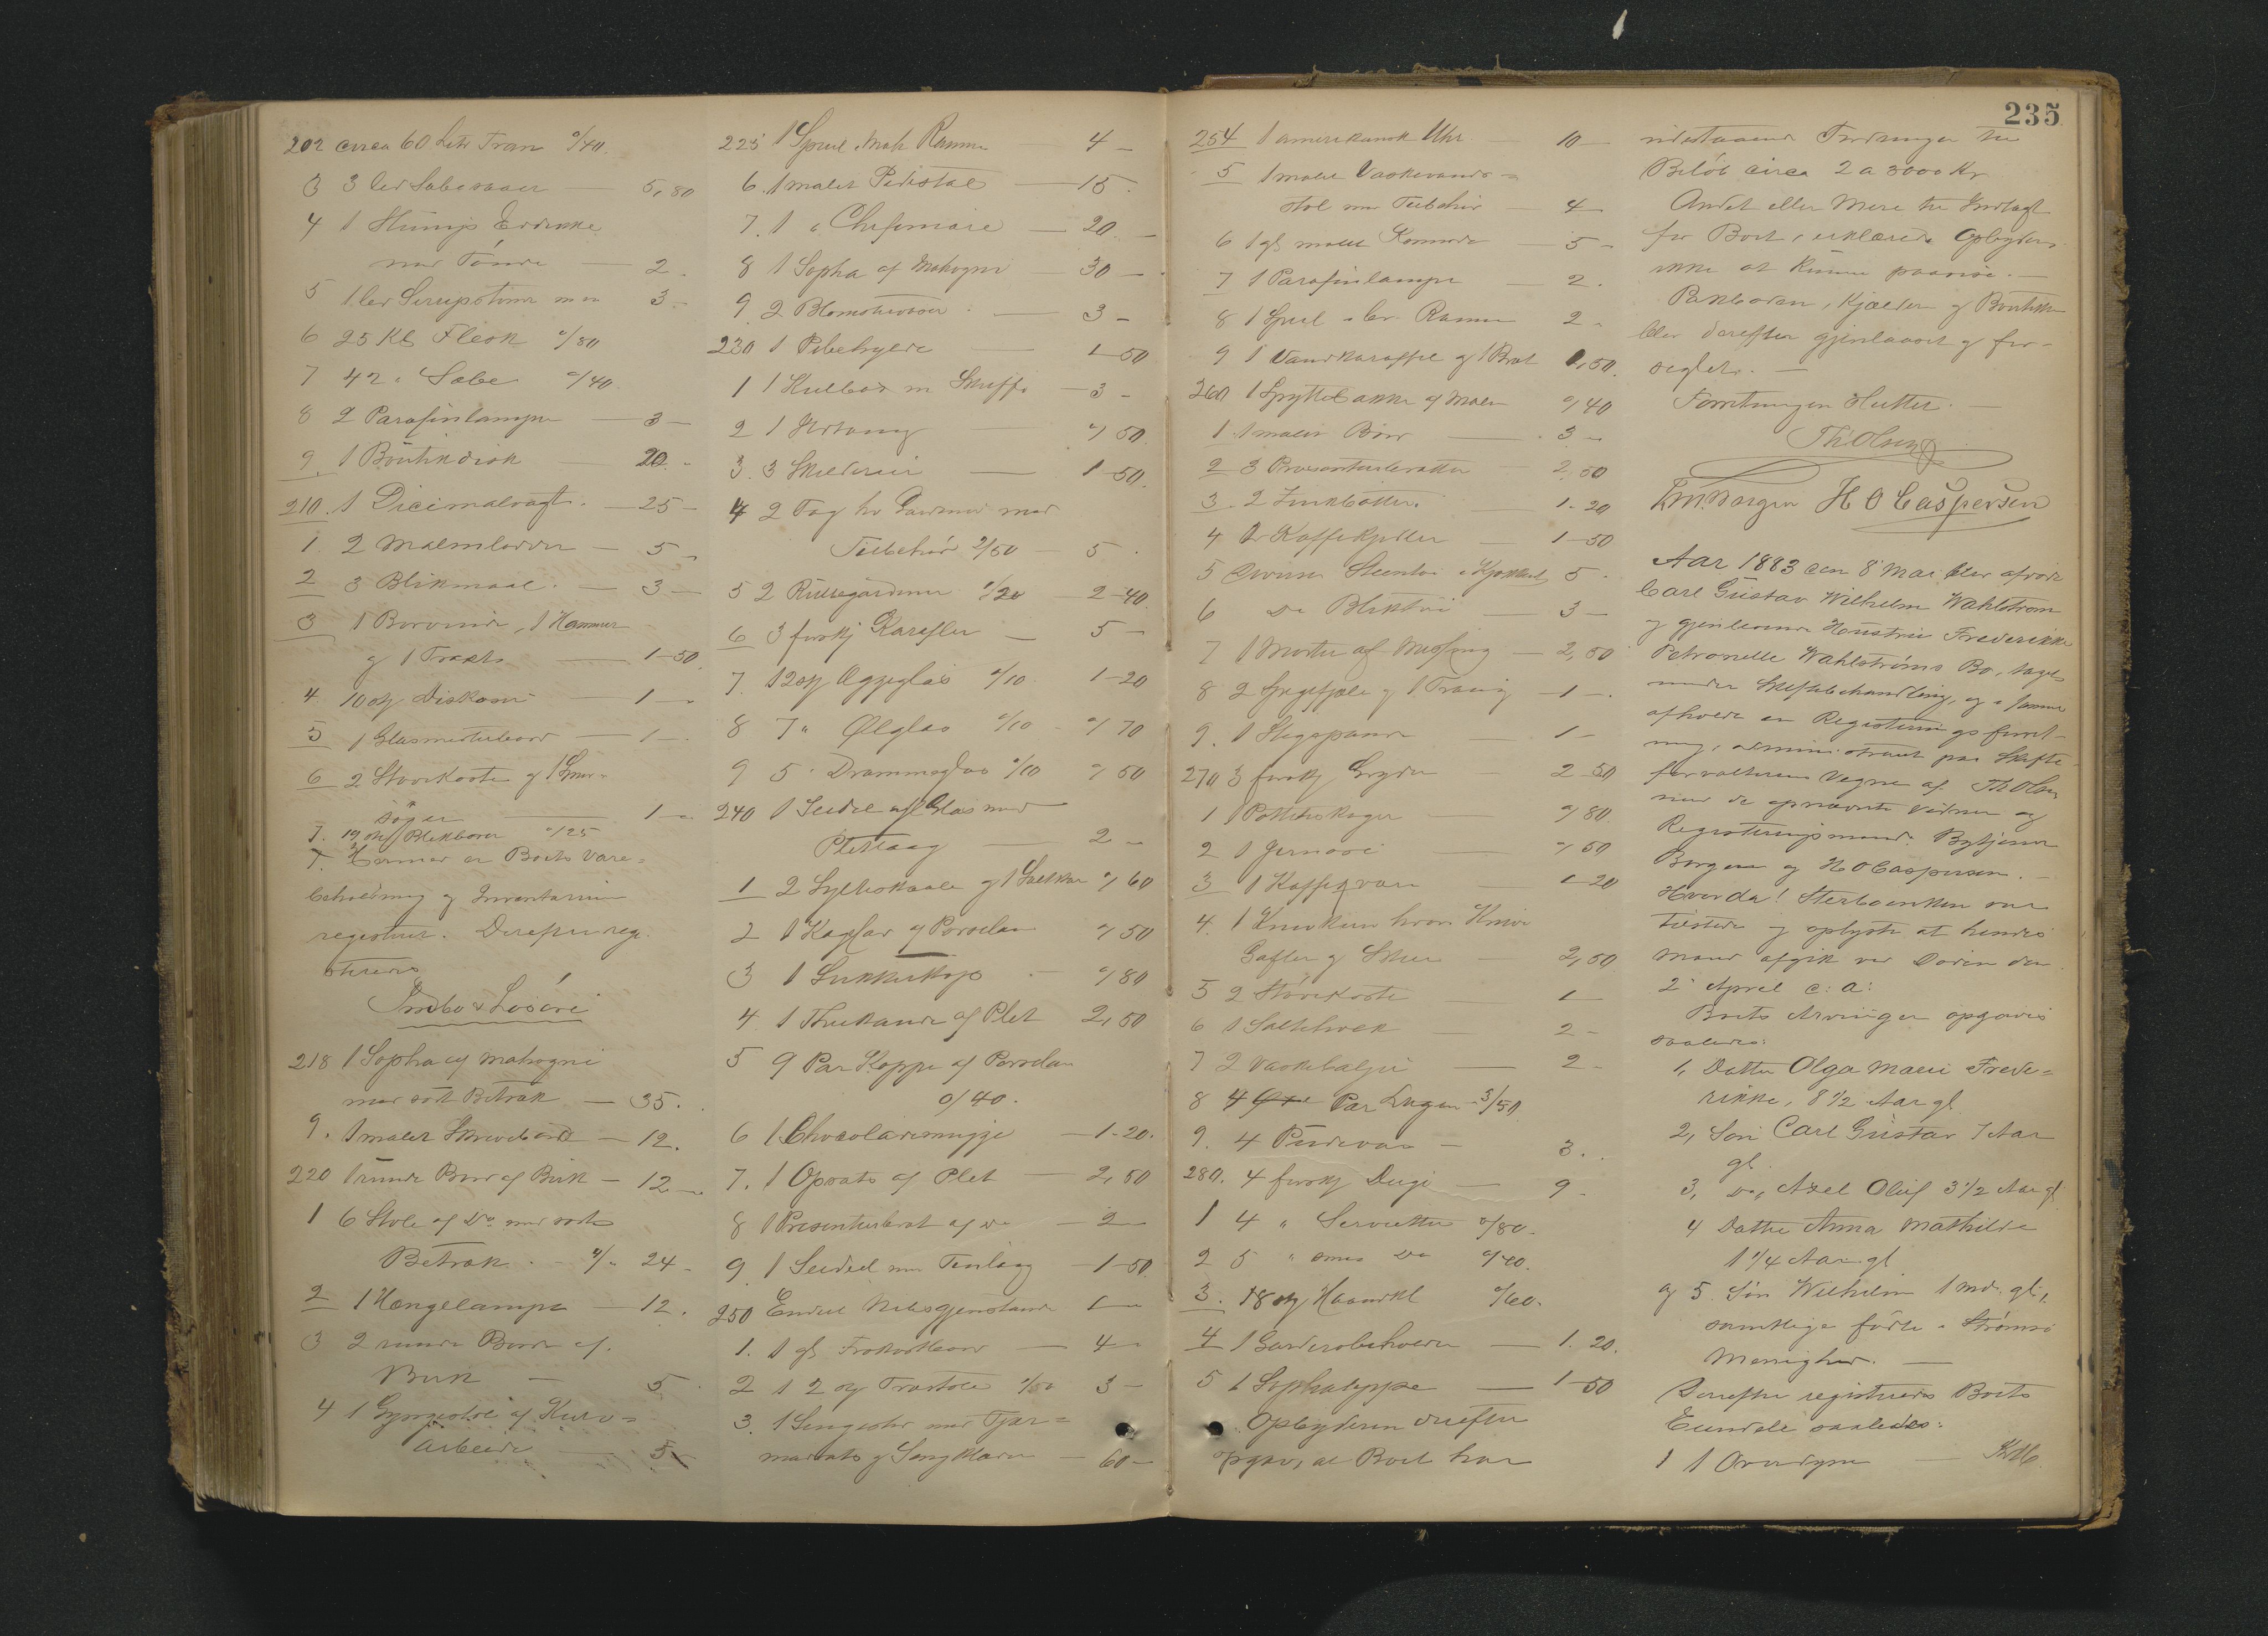 202 circa 60 Litr Tran 0/40.
3 3 ler Sabevaser 5,80
4 1 Slump Eddikke
med Tønde 2.
5 1 ler Sirupstønne m m 3 -
6 25 Kl Flesk 0/80
7 42 " Sæbe 0/40.
8 2 Parafinlamper 3 -
9. 1 Boutikdisk 20. -
210. 1 Dicimalvægt. 25 -
1. 2 Malmlodder 5 -
2 3 Blikmaal. 3 -
3 1 Borvinde, 1 Hammer
og 1 Tragt 1-50.
4 10 stk Diskaser 1 -
5 1 Glasmesterbord 1 -.
6 2 Stovekoste og 1 Smør-
søger 1 -
7. 19 stk Blikboxer 0/25
Hermed er Boets Vare-
beholdning og Inventarium
registrert. Derefter reg
streredes
Indbo & Løsøre
218 1 Sopha af Mahogni
med sort Betræk 35.
9. 1 malet Skrivebord 12.
220 1 rundt Bord af Birk 12 -
1 6 Stole af Do med sort
Betræk. 4/- 24 -
2 1 Hængelampe 12.
3 2 runde Borde af
Birk 5.
4 1 Gyngestol af Kurv-
arbeide 5
225 1 Speil i Mah Ramme 4 -
6. 1 malet Pidestal 15.
7. 1 " Chifoniere 20. -
8 1 Sopha af Mahogni 30 -
9. 2 Blomstervaser. 3 -
230 1 Pibehylde 1-50
1 1 Kulbox m Skuffe 3 -
2 1 Ildtang 0/50.
3. 3 Skilderier 1-50.
4 2 Fag hv Gardiner med
Tilbehør 2/50 5.
5 2 Rullegardiner 1/20 2-40.
6 3 forskj Karafler 5 -
7. 12 stk Æggeglas 0/10 1-20
8 7 " Ølglas 0/10 0/70
9 5 " Dramseglas 0/10 0/50
240 1 Seidel af Glas med
Pletlaag 2 -
1 2 Sylteskaale og 1 Saltkar 0/60
2 1 Kagefad af Porcelan 0/50
3 1 Sukkerkop 0/80
4. 1 Theekande af Plet 2,50
5 9 Par Koppe af Porcelan
0/40.
6 1 Chocolademugge 1-20.
7. 1 Opsats af Plet 2,50
8 1 Presenterbret af do 2 -
9. 1 Seidel med Tinlaag 1-50.
250 Endel Nipsgjenstande 1 -
1. 1 gl Frokostbord 4 -
2 12 stk Træstole 1/50 3 -
3. 1 Sengested med Fjær-
madrats og Sengklæder 60 -
235
254 1 amerikansk Uhr 10 -
5 1 malet Vaskevands-
stol med Tilbehør 4
6 1 gl malet Komode 5 -
7 1 Parafinlampe 2.
8 1 Speil i br. Ramme 2 -
9 1 Vandkaraffel og 1 Bret 1,50.
260 1 Spyttebakke af Malm 0/40
1. 1 malet Bord 3 -
2 3 Presenterbretter 2,50
3. 2 Zinkbøtter. 1-20
4 2 Kaffekjedler 1-50
5 Diverse Steentøi i Kjøkkent 5.
6 Do Bliktøi 3 -
7 1 Morter af Messing 2,50
8 2 Hægefjæle og 1 Traug 1 -.
9. 1 Stegepande 1 -
270 3 forskj Gryder 2-50
1 1 Potteskager 0/80.
2 1 Jernovn 0/50
3 1 Kaffekværn 1-20
4. 1 Knivkurv hvori Knive
Gafler og Skeer 2,50
5 2 Støvekoste 1 -
6 1 Saltehvek 2 -
7 2 Vaskebalje 2 -
8 4 Par Lagen 3/50
9. 4 Pudevar 3.
280. 4 forskj Duge 9 -
1 4 " Servietter 0/80.
2 5 " smaa do 0/40.
3. 18 stk Haandkl 0/60.
4 1 Garderobeholder 1.20.
5 1 Sophateppe 1-50
Opbyderen derefter
opgav, at Boet har
udestaaende Fordringer til
Beløb circa 2 a 3000 Kr
Andet eller Mere til Indtægt
for Boet, erklærede Opbyder
ikke at kunne paavise. -
Pakboden, Kjælder og Boutikken
blev derefter gjenlaaset og for-
seglet. -
Forretningen sluttet. -
Th Olsen
Borgen H O Caspersen
Aar 1883 den 8 Mai blev afdøde
Carl Gustav Wilhelm Wahlstrøm
og gjenlevende Hustru Frederikke
Petronelle Wahlstrøms Bo, taget
under Skiftebehandling, og i samme
afholdt en Registreringsforret-
ning, administreret paa Skifte-
forvalterens Vegne af Th Olsen
med de opnævnte Vidner og
Registreringsmænd: Bytjener
Borgen og H O Caspersen. -
Hvorda! Sterboenken var
tilstede og oplyste at hendes
Mand afgik ved Døden den
2 April c: a:
Boets Arvinger opgaves
saaledes:
1, Datter Olga Marie Frede-
rikke, 8 1/2 Aar gl
2, Søn Carl Gustav 7 Aar
gl
3, do, Axel Oluf 3 1/2 Aar gl
4 Datter Anna Mathilde
1 1/4 Aar gl
og 5. Søn Wilhelm 1 Md. gl.,
samtlige fødte i Strømsø
Menighed. -
Derefter registreredes Boets
Eiendele saaledes:
1 1 Overdyne